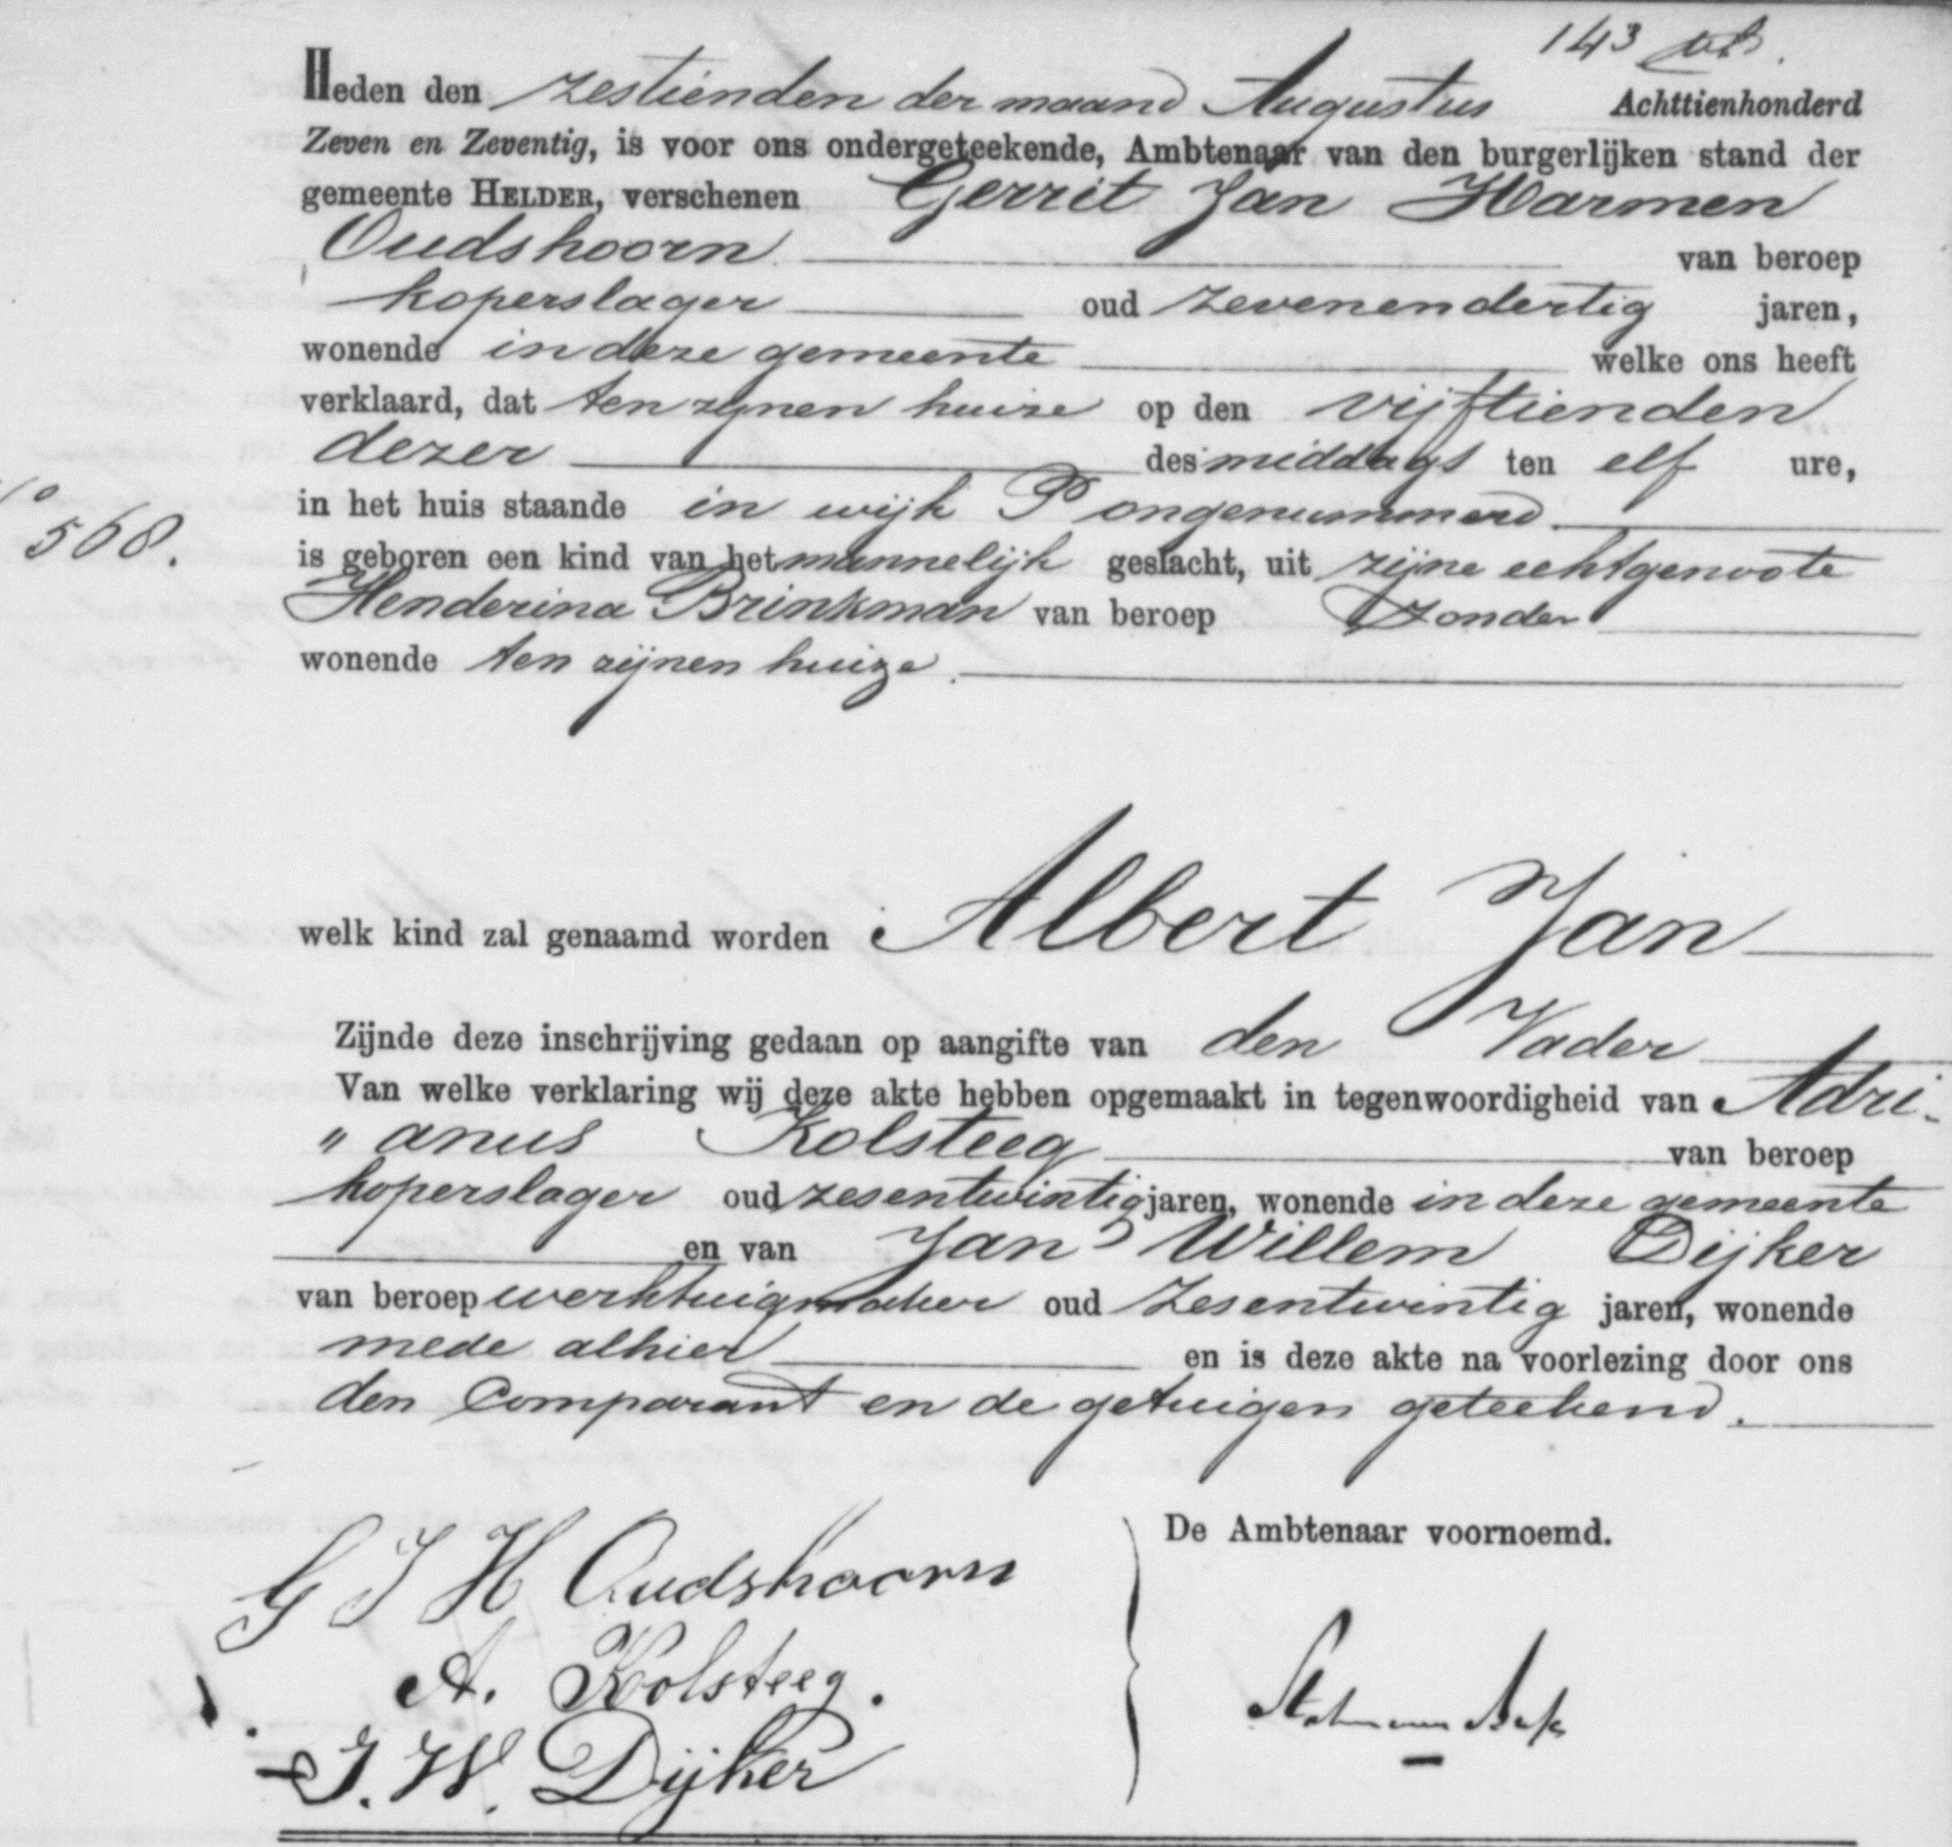 143
Heden den zestienden der maand Augustus Achttienhonderd
Zeven en Zeventig, is voor ons ondergeteekende, Ambtenaar van den burgerlijken stand der
gemeente HELDER, verschenen Gerrit Jan Harmen
Oudshoorn van beroep
koperslager oud zevenendertig jaren,
wonende in deze gemeente welke ons heeft
verklaard, dat ten zijnen huize op den vijftienden
dezer des middags ten elf ure,
No
568.
in het huis staande in wijk P ongenummerd
is geboren een kind van het mannelijk geslacht, uit zijne echtgenoote
Henderina Brinkman van beroep zonder
wonende ten zijnen huize.
welk kind zal genaamd worden Albert Jan
Zijnde deze inschrijving gedaan op aangifte van den Vader
Van welke verklaring wij deze akte hebben opgemaakt in tegenwoordigheid van Adri-
" anus Kolsteeg van beroep
koperslager oud zesentwintig jaren, wonende in deze gemeente
en van Jan Willem Dijker
van beroep werktuigmaker oud zesentwintig jaren, wonende
mede alhier en is deze akte na voorlezing door ons
den Comparant en de getuigen geteekend.
De Ambtenaar voornoemd.
G J H Oudshoorn
A. Kolsteeg.
J. W. Dijker